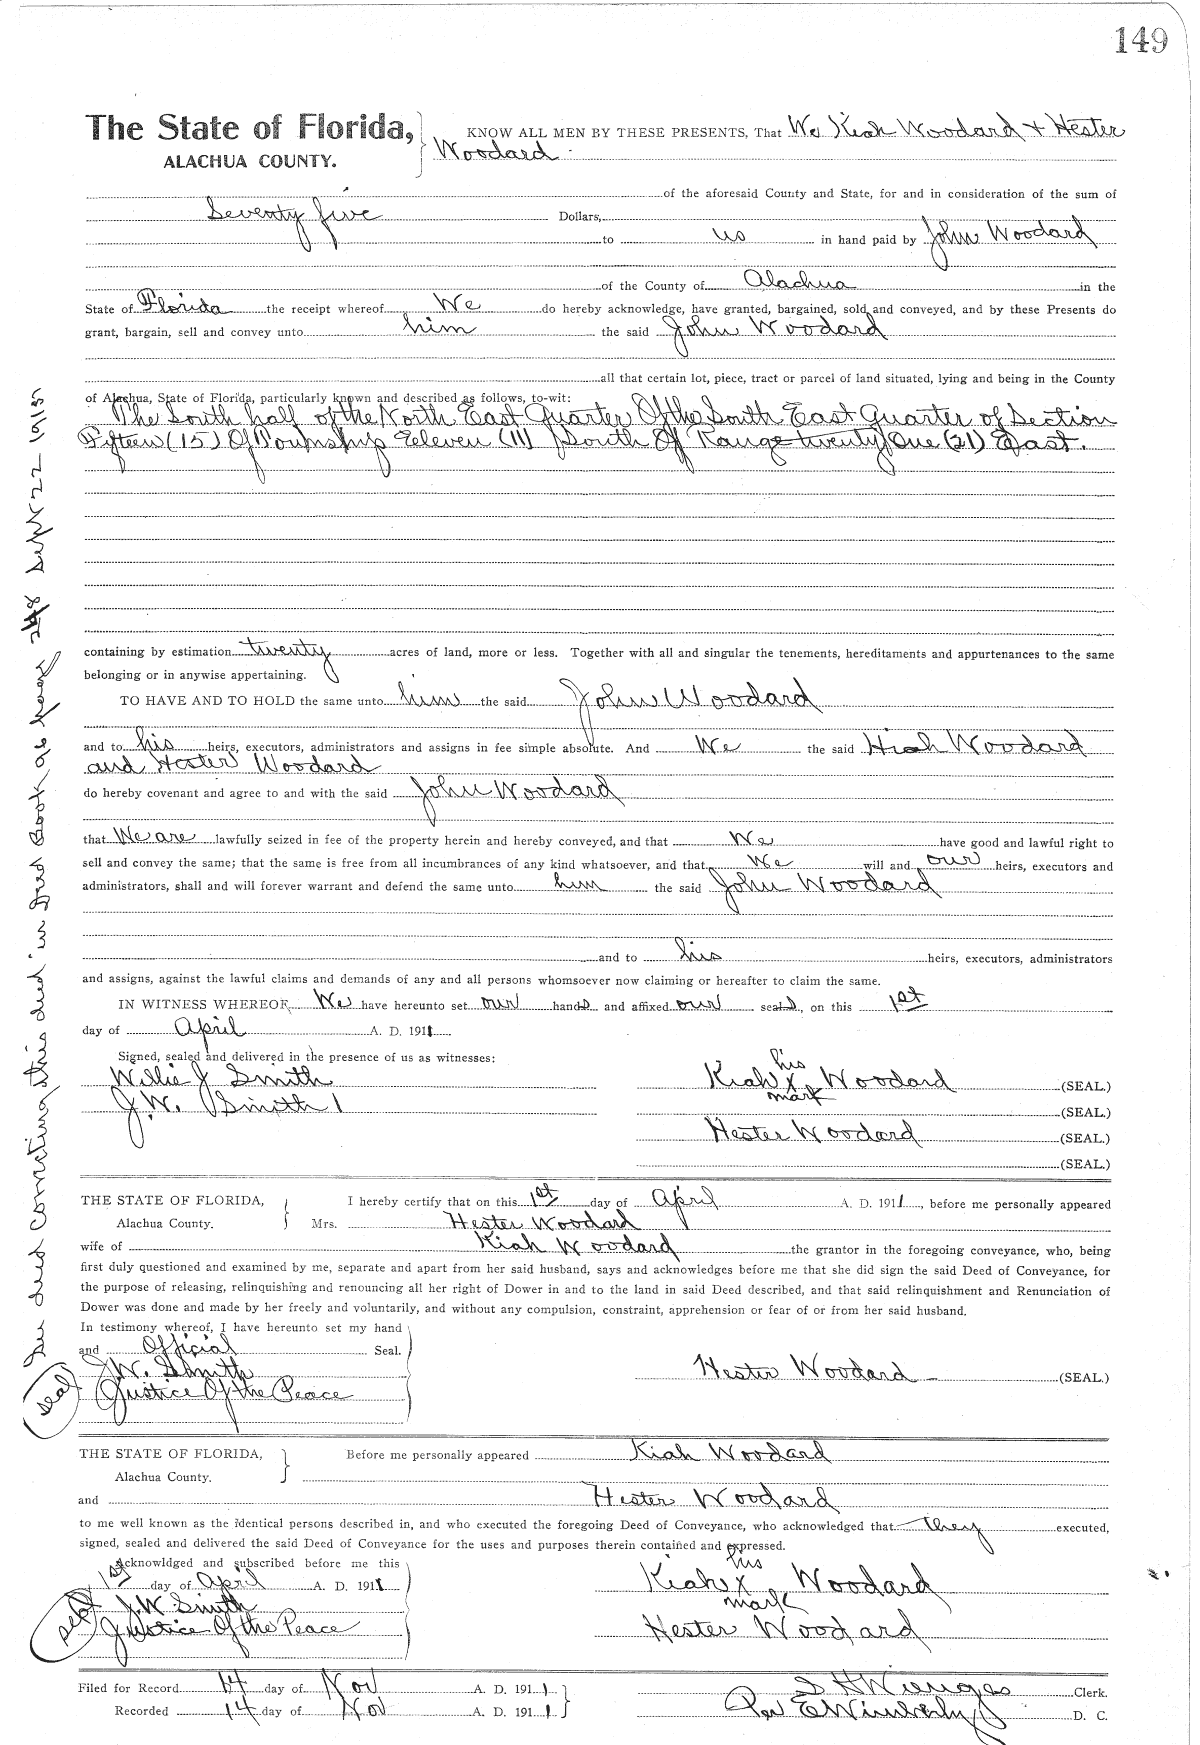 149
The State of Florida,
ALACHUA COUNTY.
KNOW ALL MEN BY THESE PRESENTS, That We Kiah Woodard + Hester
Woodard
of the aforesaid County and State, for and in consideration of the sum of
Seventy five Dollars,
to us in hand paid by John Woodard
of the County of Alachua in the
State of Florida the receipt whereof We do hereby acknowledge, have granted, bargained, sold and conveyed, and by these Presents do
grant, bargain, sell and convey unto him the said John Woodard
all that certain lot, piece, tract or parcel of land situated, lying and being in the County
of Alachua, State of Florida, particularly known and described as follows, to-wit:
The South half of the North East Quarter Of the South East Quarter of Section
Fifteen (15) Of Township Eeleven (11) South Of Range twenty One (21) East.
containing by estimation twenty acres of land, more or less. Together with all and singular the tenements, hereditaments and appurtenances to the same
belonging or in anywise appertaining.
TO HAVE AND TO HOLD the same unto him the said John Woodard
and to his heirs, executors, administrators and assigns in fee simple absolute. And We the said Kiah Woodard
and Hester Woodard
do hereby covenant and agree to and with the said John Woodard
that We are lawfully seized in fee of the property herein and hereby conveyed, and that We have good and lawful right to
sell and convey the same; that the same is free from all incumbrances of any kind whatsoever, and that We will and our heirs, executors and
administrators, shall and will forever warrant and defend the same unto him the said John Woodard
and to his heirs, executors, administrators
and assigns, against the lawful claims and demands of any and all persons whomsoever now claiming or hereafter to claim the same.
IN WITNESS WHEREOF, We have hereunto set our hands and affixed our seals, on this 1st
day of April A. D. 1911
Signed, sealed and delivered in the presence of us as witnesses:
Willie J Smith
J.W. Smith
his
Kiah x Woodard (SEAL.)
mark
(SEAL.)
Hester Woodard (SEAL.)
(SEAL.)
THE STATE OF FLORIDA,
Alachua County.
I hereby certify that on this 1st day of April A. D. 1911, before me personally appeared
Mrs. Hester Woodard
wife of Kiah Woodard the grantor in the foregoing conveyance, who, being
first duly questioned and examined by me, separate and apart from her said husband, says and acknowledges before me that she did sign the said Deed of Conveyance, for
the purpose of releasing, relinquishing and renouncing all her right of Dower in and to the land in said Deed described, and that said relinquishment and Renunciation of
Dower was done and made by her freely and voluntarily, and without any compulsion, constraint, apprehension or fear of or from her said husband.
In testimony whereof, I have hereunto set my hand
and Official Seal.
J.W. Smith
Justice Of the Peace
seal
Hester Woodard (SEAL.)
THE STATE OF FLORIDA,
Alachua County.
Before me personally appeared Kiah Woodard
and Hester Woodard
to me well known as the identical persons described in, and who executed the foregoing Deed of Conveyance, who acknowledged that they executed,
signed, sealed and delivered the said Deed of Conveyance for the uses and purposes therein contained and expressed.
Acknowldged and subscribed before me this
1st day of April A. D. 1911
J.W. Smith
Justice Of the Peace
seal
his
Kiah x Woodard
mark
Hester Woodard
Filed for Record 14 day of Nov A. D. 1911
Recorded 14 day of Nov A. D. 1911
S H Wienges Clerk.
Per E Wimberly D. C.
See deed correcting this deed in Deed Book 96 page 248 Sept 22 1915